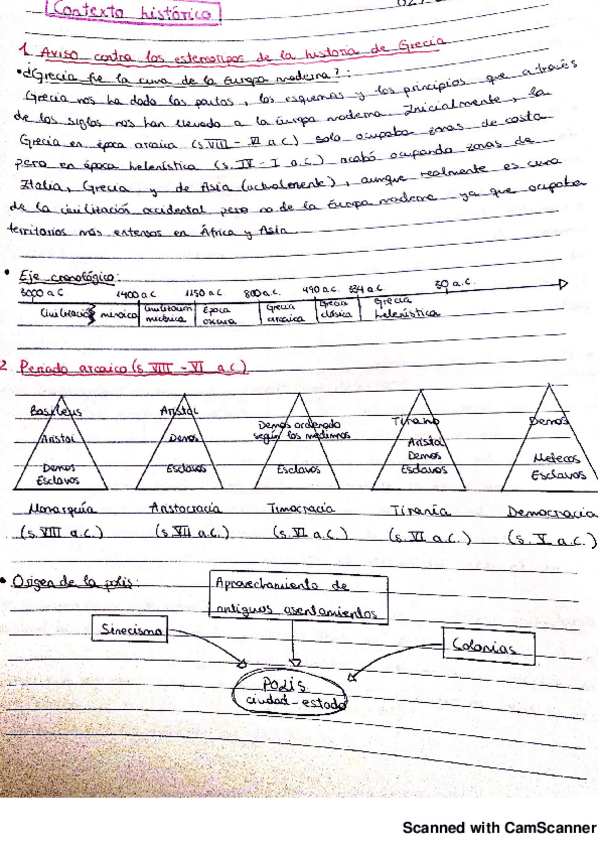 Contexto histórico
1. Aviso contra los estereotipos de la historia de Grecia
• ¿Grecia fue la cuna de la Europa moderna?:
Grecia nos ha dado las pautas, los esquemas y los principios que a través
de los siglos nos han llevado a la Europa moderna. Inicialmente, la
Grecia en época arcaica (s. VIII - VI a.C.) solo ocupaba zonas de costa
pero en época helenística (s. IV - I a.C.) acabó ocupando zonas de
Italia, Grecia y de Asia (actualmente), aunque realmente es cuna
de la civilización occidental pero no de la Europa moderna ya que ocupaba
territorios más extensos en África y Asia.
• Eje cronológico:
3000 a.C 1400 a.C 1150 a.C 800 a.C. 490 a.C. 334 a.C 30 a.C.
Civilización minoica Civilización micénica Época oscura Grecia arcaica Grecia clásica Grecia helenística
2. Periodo arcaico (s. VIII - VI a.C)
Basileus Aristoi Demos ordenado según los medimnos Tirano Demos
Aristoi Demos Aristoi Demos Metecos
Demos Esclavos Esclavos Esclavos Esclavos Esclavos
Monarquía Aristocracia Timocracia Tiranía Democracia
(s. VIII a.C.) (s. VII a.C.) (s. VI a.C.) (s. VI a.C.) (s. V a.C.)
• Origen de la polis:
Aprovechamiento de
antiguos asentamientos
Sinecismo
Colonias
Polis
ciudad-estado
Scanned with CamScanner